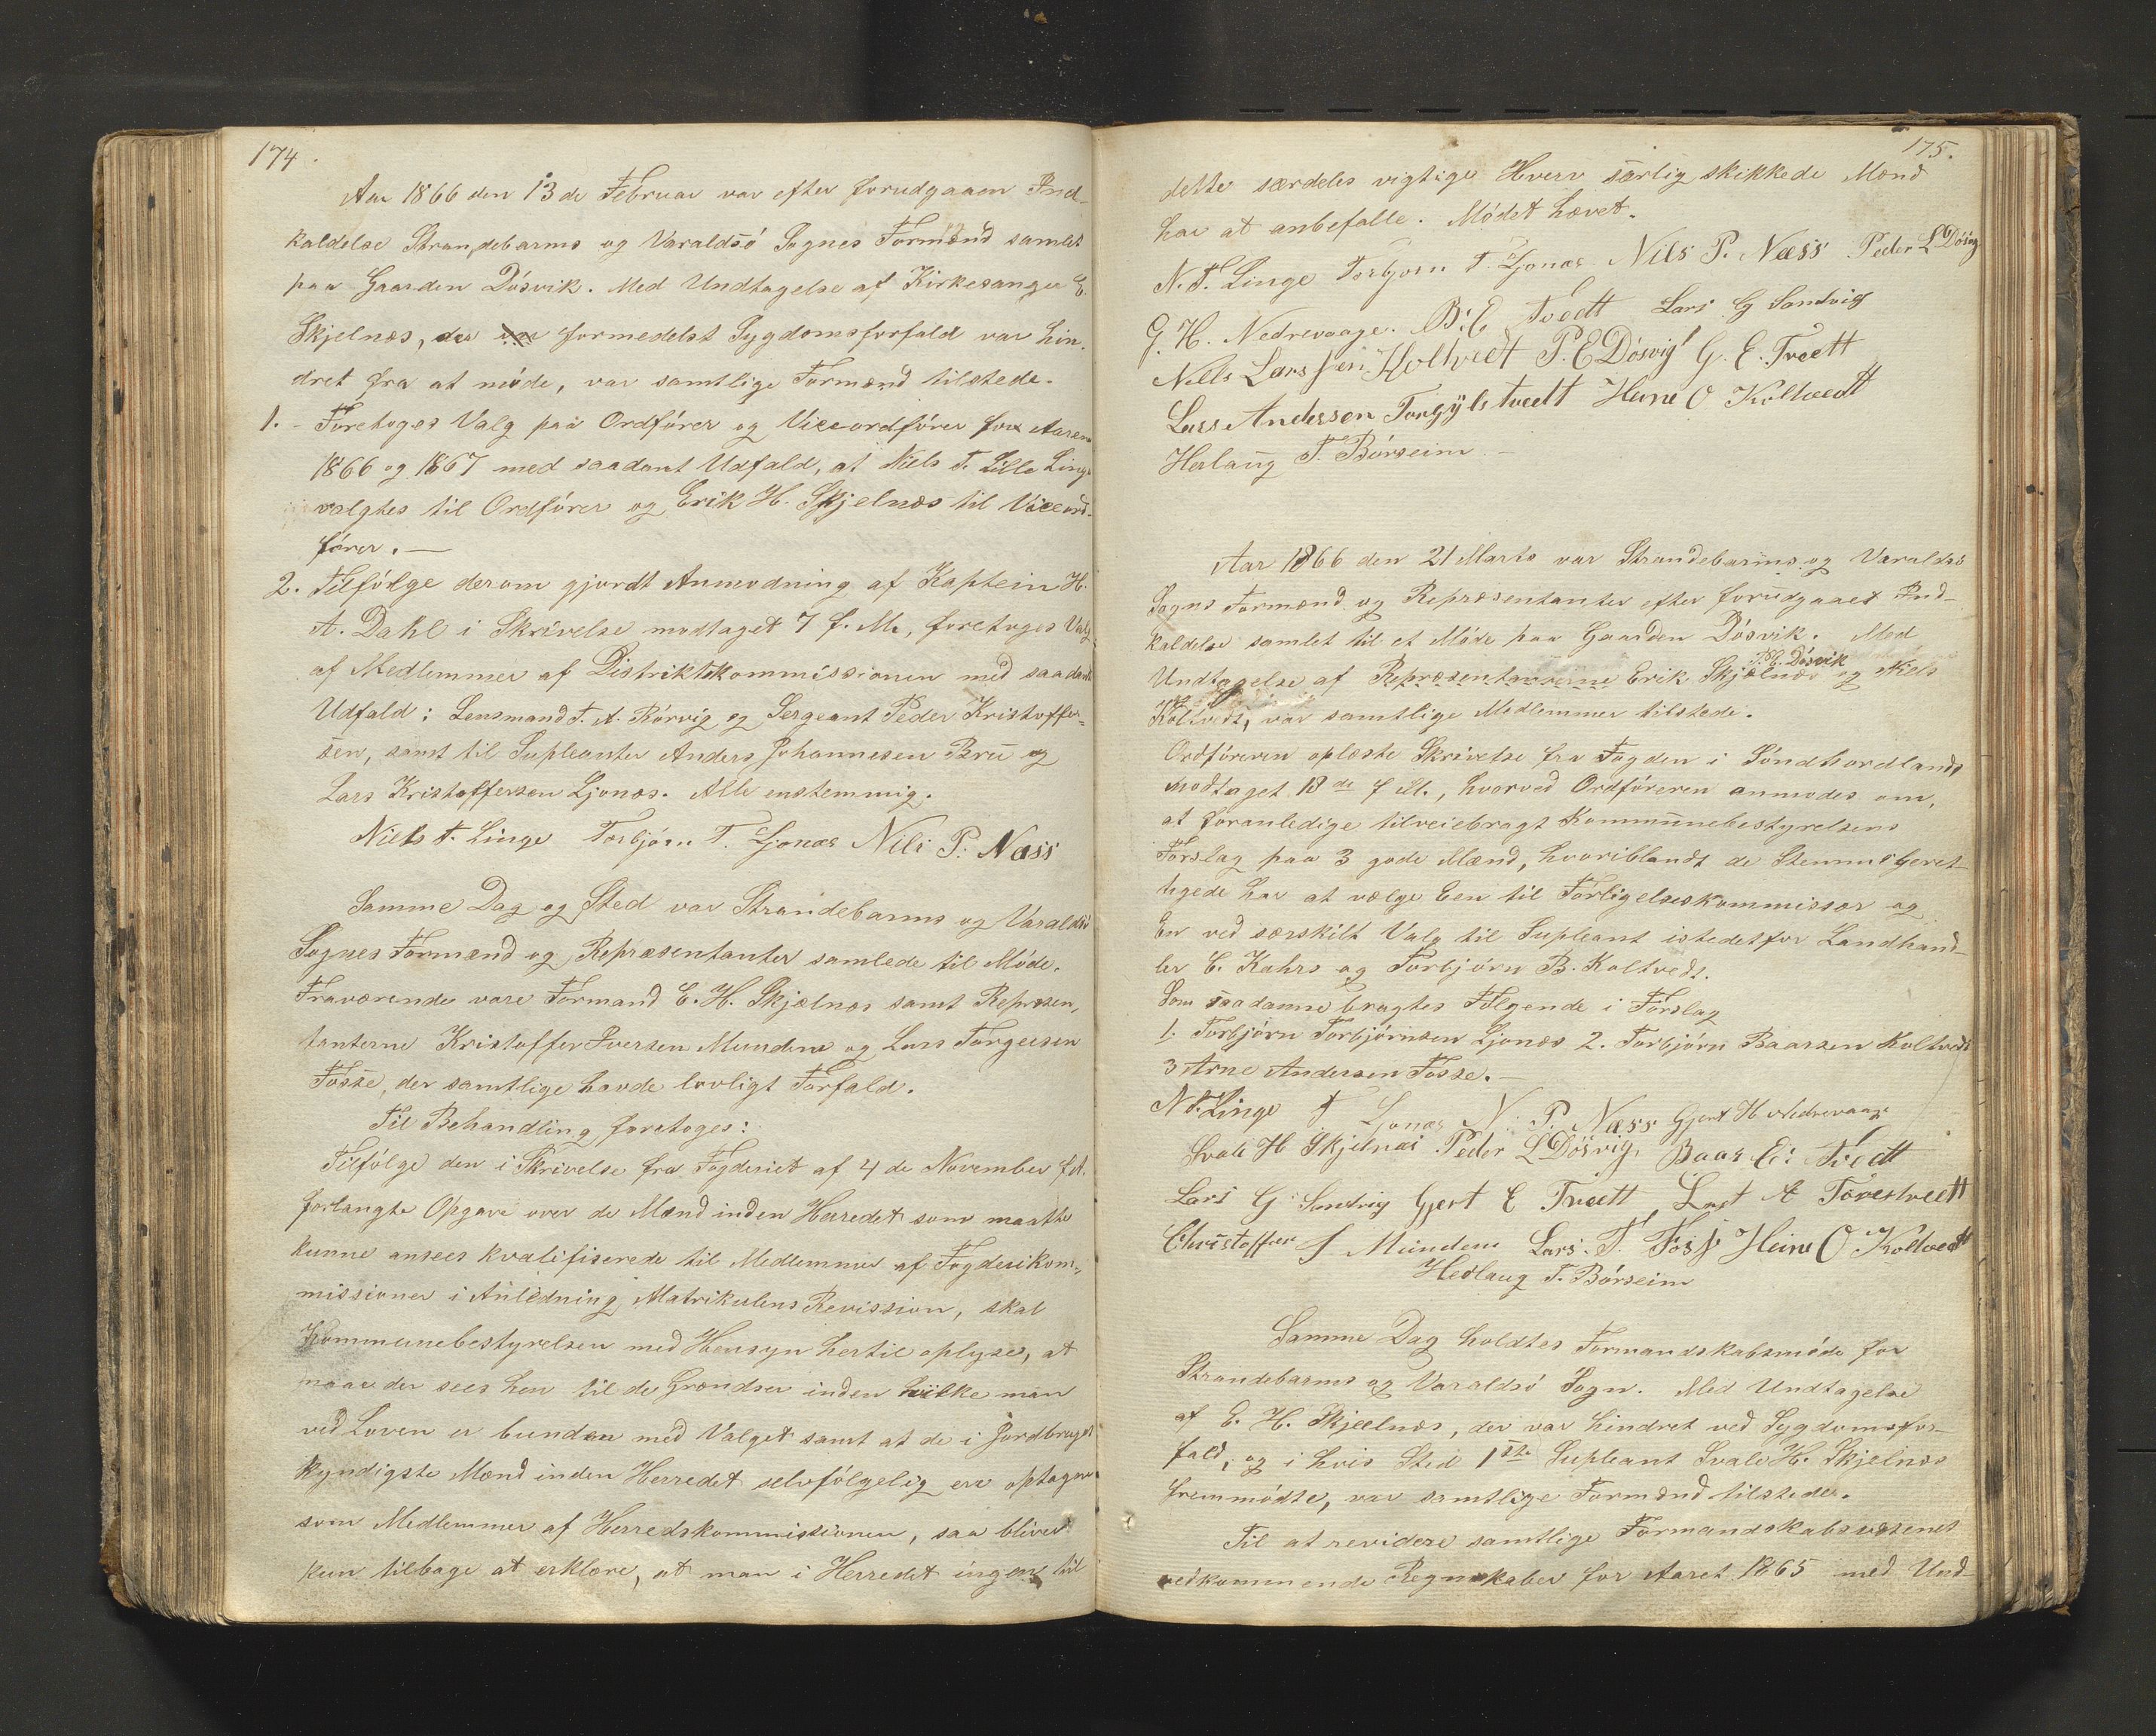 174.
Aar 1866 den 13de Februar var efter forudgaaen Ind-
kaldelse Strandebarms og Varaldsö Sognes Formænd samlet
paa Gaarden Dösvik. Med Undtagelse af Kirkesanger E.
Skjelnæs, der formedelst Sygdomsforfald var hin-
dret fra at möde, var samtlige Formænd tilstede.
1. - Foretoges Valg paa Ordförer og Viceordförer for Aarene
1866 og 1867 med saadant Udfald, at Niels T. Lille Linge
valgtes til Ordförer og Erik H. Skjelnæs til Viceord-
förer. —
2. Tilfölge derom gjordt Anmodning af Kaptein H.
A. Dahl i Skrivelse modtaget 7 f. M., foretoges Valg
af Medlemmer af Distriktskommissionen med saadant
Udfald: Lensmand T. A. Rörvig og Sergeant Peder Kristoffer-
sen, samt til Supleanter Anders Johannesen Bru og
Lars Kristoffersen Ljonæs. Alle enstemmig.
Niels T. Linge Torbjörn T. Ljonæs Nils P. Næss
Samme Dag og Sted var Strandebarms og Varaldsö
Sognes Formænd og Repræsentanter samlede til Möde.
Fraværende vare Formand E. H. Skjælnæs samt Repræsen-
tanterne Kristoffer Iversen Mundem og Lars Torgersen
Fosse, der samtlige havde lovligt Forfald.
Til Behandling foretoges:
Tilfölge den i Skrivelse fra Fogderiet af 4de November f.A.
forlangte Opgave over de Mænd inden Herredet som maatte
kunne ansees kvalifiserede til Medlemmer af Fogderikom-
missioner i Anledning Matrikulens Revission, skal
Kommunebestyrelsen med Hensyn hertil oplyse, at
naar der sees hen til de Grændser inden hvilke man
ved Loven er bunden med Valget samt at de i Jordbruget
kyndigste Mænd inden Herredet selvfölgelig ere optagne
som Medlemmer af Herredskommissionen, saa bliver
kun tilbage at erklære, at man i Herredet ingen til
175.
dette særdeles vigtige Hverv særlig skikkede Mænd
har at anbefalle. Mödet hævet.
N. T. Linge Torbjorn T. Ljonæs Nils P. Næss Peder L Dösvig
G. H. Nedrevaage. B: E Tvedt Lars G Sandvig
Nills Larssen Holtvedt P. E Dösvig G. E. Tveett
Lars Andersen Torgylstveett Hans O Koltvedt
Herlaug T. Börseim —
Aar 1866 den 21 Marts var Strandebarms og Varaldsö
Sogns Formænd og Repræsentanter efter forudgaaet Ind-
kaldelse samlet til et Möde paa Gaarden Dösvik. Med
P. E. Dösvik
Undtagelse af Repræsentanterne Erik Skjælnæs og Niels
Koltvedt, var samtlige Medlemmer tilstede.
Ordföreren oplæste Skrivelse fra Fogden i Söndhordland
modtaget 18de f M., hvorved Ordföreren anmodes om,
at foranledige tilveiebragt Kommunebestyrelsens
Forslag paa 3 gode Mænd, hvoriblandt de Stemmeberet-
tigede har at vælge Een til Forligelseskommissær og
En ved særskilt Valg til Supleant istedetfor Landhand-
ler C. Kahrs og Torbjörn B. Koltvedt.
Som saadanne bragtes Fölgende i Forslag
1. Torbjörn Torbjörnsen Ljonæs 2. Torbjörn Baarsen Koltvedt
3 Arne Andersen Fosse. —
N T. Linge T Ljonæs N. P. Næss Gjert H Nedrevaage
Svale H Skjelnæs Peder L Dösvig, Baar E: Tvedt
Lars G Sandvig Gjert E Tveett Lars A Torestveett
Christoffer J Mundem Lars. T. Fosse Heine O Koltvedt
Hedlaug T. Börseim
Samme Dag holdtes Formandskabsmöde for
Strandebarms og Varaldsö Sogn. Med Undtagelse
af E. H. Skjælnæs, der var hindret ved Sygdomsfor-
fald, og i hvis Sted 1ste Supleant Svale H. Skjelnæs
fremmödte, var samtlige Formænd tilstede.
Til at revidere samtlige Formandskabsvæsenet
vedkommende Regnskaber for Aaret 1865 med Und-